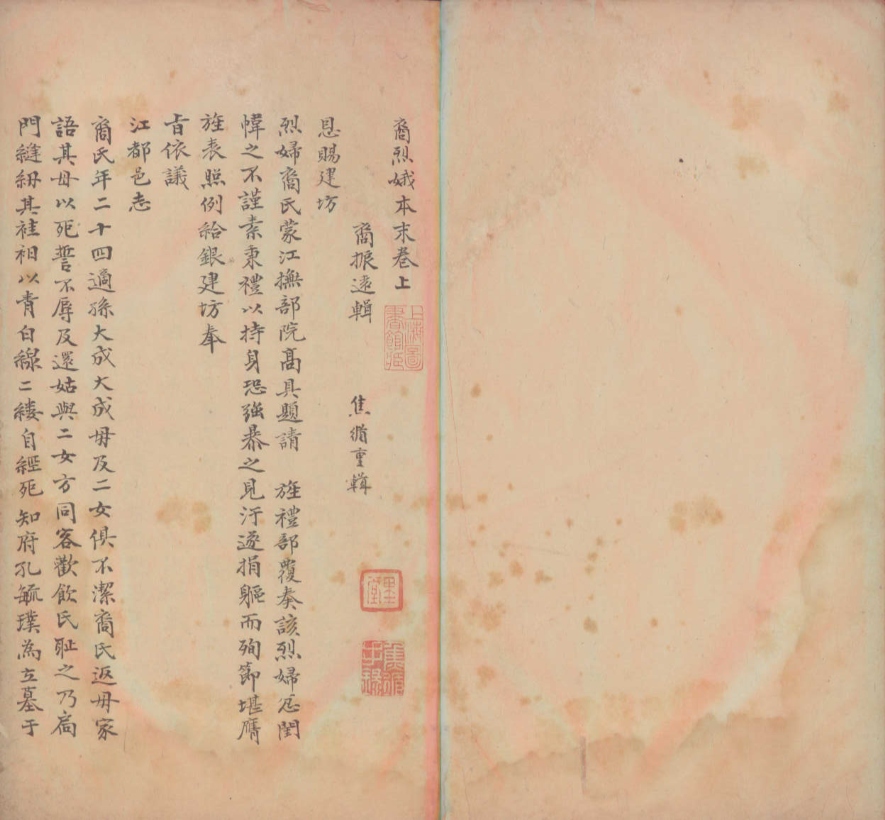 裔烈娥本末卷上
裔振遠輯　焦循重輯
恩賜建坊
烈婦裔氏蒙江撫部院高具題請　旌禮部覆奏該烈婦忍閨
幃之不謹素秉禮以持身恐強暴之見汙遂捐軀而殉節堪膺
旌表照例給銀建坊奉
旨依議
江都邑志
裔氏年二十四適孫大成大成毋及二女俱不潔裔氏返毋家
語其毋以死誓不辱及還姑與二女方同客歡飲氏恥之乃扃
門縫紉其袿袽以青白線二縷自經死知府孔毓璞為立墓于
上海圖書館藏